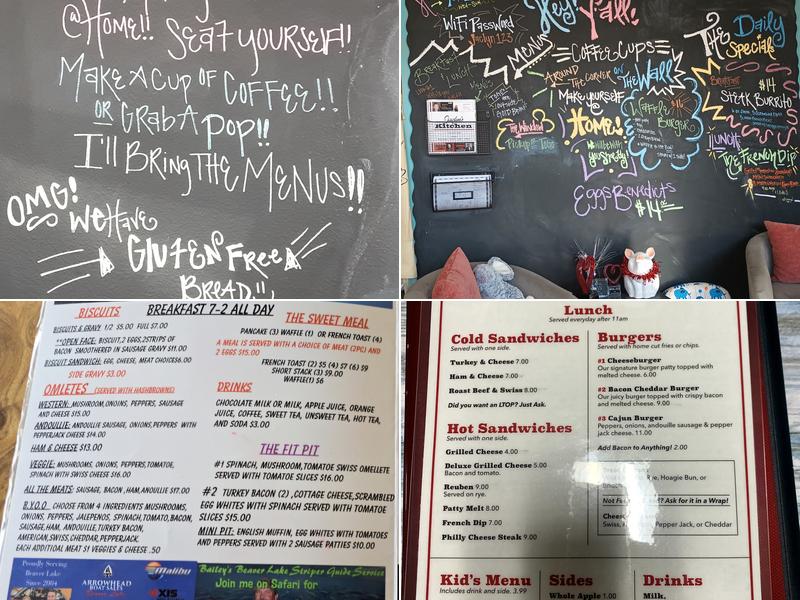 @Home!! Seat yourself!!
Make a cup of coffee!!
or Grab a pop!!
I'll Bring the Menus!!
OMG!
we Have
Gluten Free
Bread!!
Hey! Y'all!
WiFi Password
Jaclyn123
Menus
Breakfast
Lunch
Coffee Cups
Around
the corner on
The Wall
Make yourself
@
Home!
Kitchen
The Window
Pickup
Eggs Benedicts
$14
The Daily
Specials
Breakfast
$14
Steak Burrito
Lunch
The French Dip
BISCUITS
BISCUITS & GRAVY 1/2 $5.00 FULL $7.00
**OPEN FACE: BISCUIT,2 EGGS,2STRIPS OF
BACON SMOOTHERED IN SAUSAGE GRAVY $11.00
BISCUIT SANDWICH: EGG, CHEESE, MEAT CHOICE$6.00
SIDE GRAVY $3.00
OMLETES (SERVED WITH HASHBROWNS)
WESTERN: MUSHROOM,ONIONS, PEPPERS, SAUSAGE
AND CHEESE $15.00
ANDOUILLE: ANDOUILLE SAUSAGE, ONIONS,PEPPERS WITH
PEPPERJACK CHEESE $14.00
HAM & CHEESE $13.00
VEGGIE: MUSHROOMS, ONIONS, PEPPERS,TOMATOE,
SPINACH WITH SWISS CHEESE $16.00
ALL THE MEATS: SAUSAGE, BACON ,HAM,ANOULLIE $17.00
B.Y.O.O CHOOSE FROM 4 INGREDIENTS MUSHROOMS,
ONIONS, PEPPERS, JALEPENOS, SPINACH,TOMATO,BACON,
SAUSAGE,HAM, ANDOUILLE,TURKEY BACON,
AMERICAN,SWISS,CHEDDAR,PEPPERJACK.
EACH ADDITIOAL MEAT $1 VEGGIES & CHEESE .50
BREAKFAST 7-2 ALL DAY
THE SWEET MEAL
PANCAKE (3) WAFFLE (1) OR FRENCH TOAST (4)
A MEAL IS SERVED WITH A CHOICE OF MEAT (2PC) AND
2 EGGS $15.00
FRENCH TOAST (2) $5 (4) $7 (6) $9
SHORT STACK (3) $9.00
WAFFLE(1) $6
DRINKS
CHOCOLATE MILK OR MILK, APPLE JUICE, ORANGE
JUICE, COFFEE, SWEET TEA, UNSWEET TEA, HOT TEA,
AND SODA $3.00
THE FIT PIT
#1 SPINACH, MUSHROOM,TOMATOE SWISS OMELETTE
SERVED WITH TOMATOE SLICES $16.00
#2 TURKEY BACON (2) ,COTTAGE CHEESE,SCRAMBLED
EGG WHITES WITH SPINACH SERVED WITH TOMATOE
SLICES $15.00
MINI PIT: ENGLISH MUFFIN, EGG WHITES WITH TOMATOES
AND PEPPERS SERVED WITH 2 SAUSAGE PATTIES $10.00
Proudly Serving
Beaver Lake
Since 2004
ARROWHEAD
BOAT SALES
Malibu
AXIS
Bailey's Beaver Lake Striper Guide Service
Join me on Safari for
Lunch
Served everyday after 11am
Cold Sandwiches
Served with one side.
Turkey & Cheese 7.00
Ham & Cheese 7.00
Roast Beef & Swiss 8.00
Did you want an LTOP? Just Ask.
Hot Sandwiches
Served with one side.
Grilled Cheese 4.00
Deluxe Grilled Cheese 5.00
Bacon and tomato.
Reuben 9.00
Served on rye.
Patty Melt 8.00
French Dip 7.00
Philly Cheese Steak 9.00
Burgers
Served with home cut fries or chips.
#1 Cheeseburger
Our signature burger patty topped with
melted cheese. 6.00
#2 Bacon Cheddar Burger
Our juicy burger topped with crispy bacon
and melted cheese. 9.00
#3 Cajun Burger
Peppers, onions, andouille sausage & pepper
jack cheese. 11.00
Add Bacon to Anything! 2.00
Rye, Hoagie Bun, or
Not Ask for it in a Wrap!
Swiss, Pepper Jack, or Cheddar
Kid's Menu
Includes drink and side. 3.99
Sides
Whole Apple 1.00
Drinks
Milk,